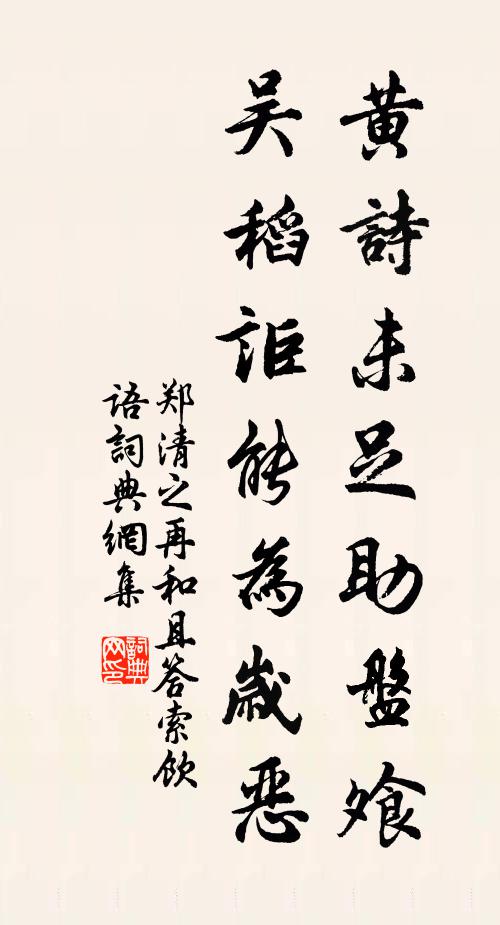 黃詩未足助盤飧
吴稻詎能為歲惡
郑清之再和且答索飲
语詞典網集
詞典网印